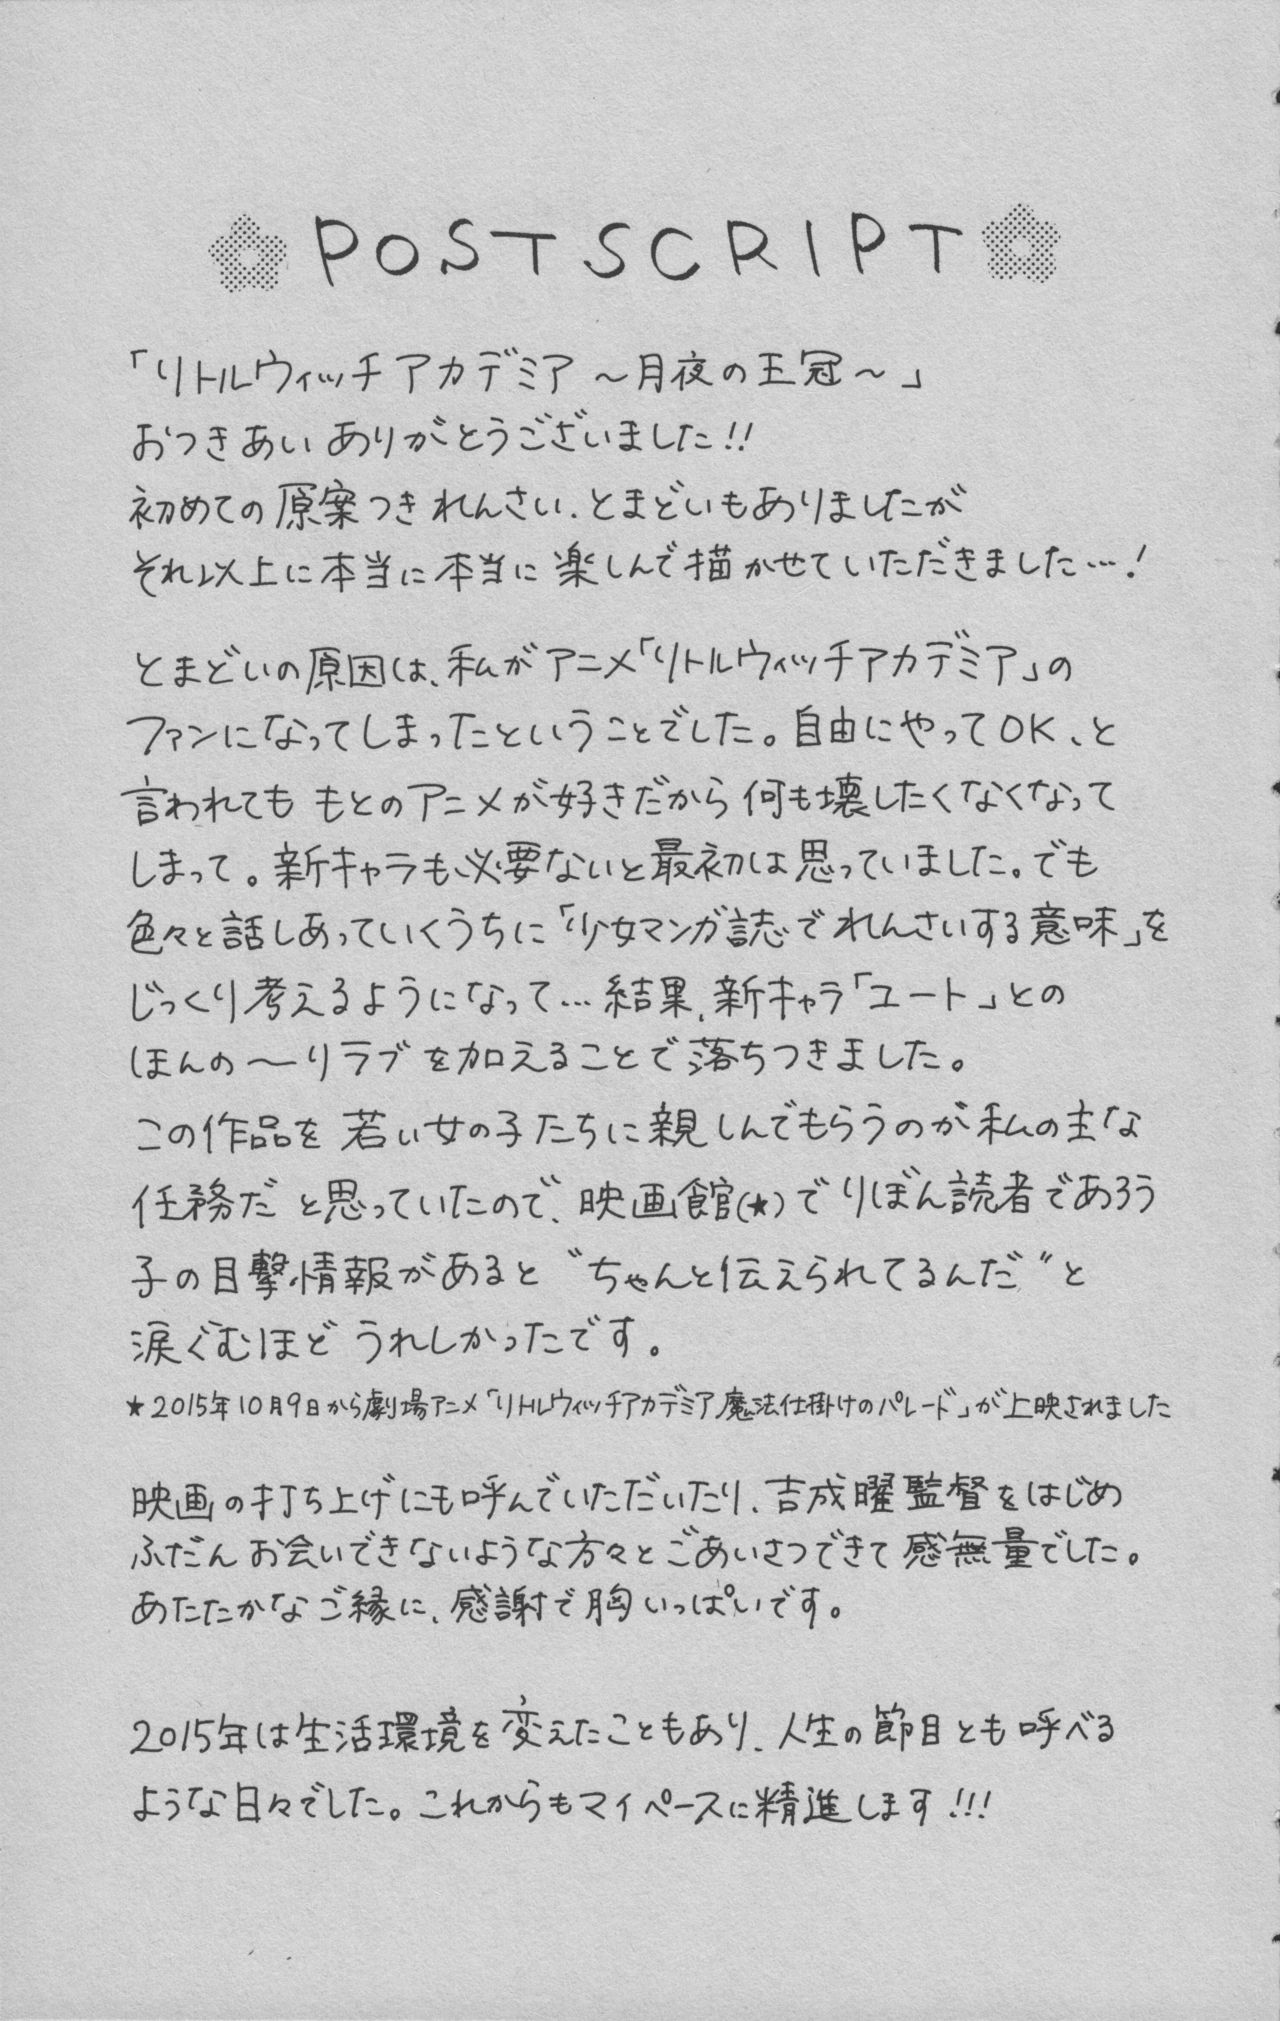 POSTSCRIPT
「リトルウィッチアカデミア 〜月夜の王冠〜」
おつきあい ありがとうございました!!
初めての原案つき れんさい、とまどいもありましたが
それ以上に本当に本当に楽しんで描かせていただきました…!
とまどいの原因は、私がアニメ「リトルウィッチアカデミア」の
ファンになってしまったということでした。自由にやってOK、と
言われても もとのアニメが好きだから何も壊したくなくなって
しまって。新キャラも必要ないと最初は思っていました。でも
色々と話しあっていくうちに「少女マンガ誌でれんさいする意味」を
じっくり考えるようになって…結果、新キャラ「ユート」との
ほんの〜りラブを加えることで落ちつきました。
この作品を若い女の子たちに親しんでもらうのが私の主な
任務だと思っていたので、映画館(★)でりぼん読者であろう
子の目撃情報があると〝ちゃんと伝えられてるんだ〟と
涙ぐむほど うれしかったです。
★2015年10月9日から劇場アニメ「リトルウィッチアカデミア 魔法仕掛けのパレード」が上映されました
映画の打ち上げにも呼んでいただいたり、吉成曜監督をはじめ
ふだんお会いできないような方々とごあいさつできて感無量でした。
あたたかなご縁に、感謝で胸いっぱいです。
2015年は生活環境を変えたこともあり、人生の節目とも呼べる
ような日々でした。これからもマイペースに精進します!!!